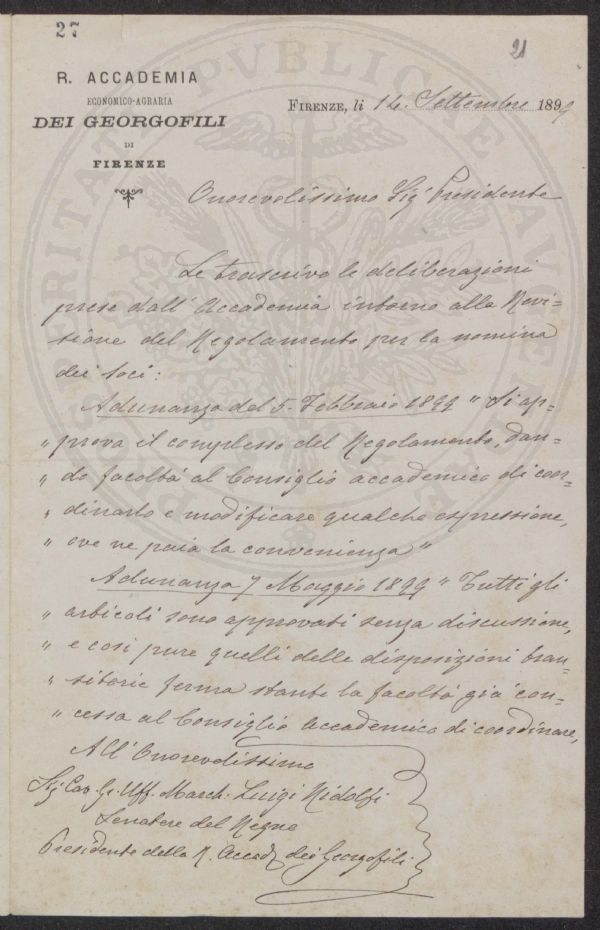 27
21
R. ACCADEMIA
ECONOMICO-AGRARIA
DEI GEORGOFILI
DI
FIRENZE
FIRENZE, li 14. Settembre 1899
Onorevolissimo Sigr Presidente
Le trascrivo le deliberazioni
prese dall' Accademia intorno alla Revi=
sione del Regolamento per la nomina
dei soci:
Adunanza del 5. Febbraio 1899 " Si ap-
" prova il complesso del Regolamento, dan-
" do facoltà al Consiglio accademico di coor-
" dinarlo e modificare qualche espressione,
" ove ne paia la convenienza "
Adunanza 7 Maggio 1899 " Tutti gli
" articoli sono approvati senza discussione,
" e così pure quelli delle disposizioni tran-
" sitorie ferma stante la facoltà già con-
" cessa al Consiglio accademico di coordinare,
All' Onorevolissimo
Sig Cav. Gr. Uff. March. Luigi Ridolfi
Senatore del Regno
Presidente della R. Accad. dei Georgofili
PROSPERITATI PUBLICAE AUGENDAE